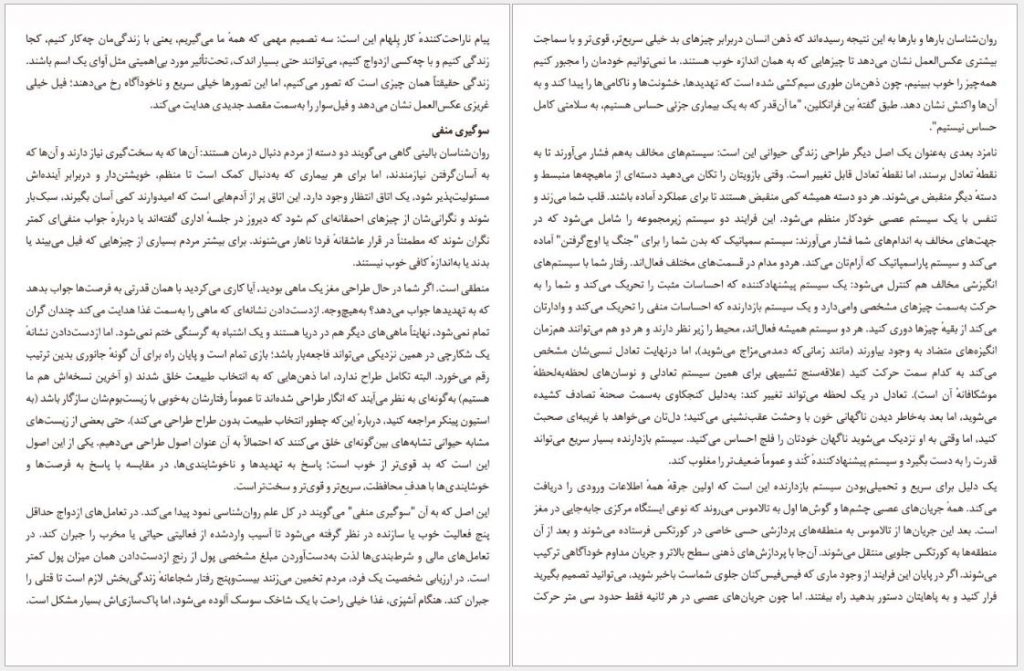 پیام ناراحت‌کنندهٔ کار پلهام این است: سه تصمیم مهمی که همهٔ ما می‌گیریم، یعنی با زندگی‌مان چه‌کار کنیم، کجا
زندگی کنیم و با چه‌کسی ازدواج کنیم، می‌توانند حتی بسیار اندک، تحت‌تأثیر مورد بی‌اهمیتی مثل آوای یک اسم باشند.
زندگی حقیقتاً همان چیزی است که تصور می‌کنیم، اما این تصورها خیلی سریع و ناخودآگاه رخ می‌دهند؛ فیل خیلی
غریزی عکس‌العمل نشان می‌دهد و فیل‌سوار را به‌سمت مقصد جدیدی هدایت می‌کند.
سوگیری منفی
روان‌شناسان بالینی گاهی می‌گویند دو دسته از مردم دنبال درمان هستند: آن‌ها که به سخت‌گیری نیاز دارند و آن‌ها که
به آسان‌گرفتن نیازمندند، اما برای هر بیماری که به‌دنبال کمک است تا منظم، خویشتن‌دار و دربرابر آینده‌اش
مسئولیت‌پذیر شود، یک اتاق انتظار وجود دارد. این اتاق پر از آدم‌هایی است که امیدوارند کمی آسان بگیرند، سبک‌بار
شوند و نگرانی‌شان از چیزهای احمقانه‌ای کم شود که دیروز در جلسهٔ اداری گفته‌اند یا دربارهٔ جواب منفی‌ای کمتر
نگران شوند که مطمئناً در قرار عاشقانهٔ فردا ناهار می‌شنوند. برای بیشتر مردم بسیاری از چیزهایی که فیل می‌بیند یا
بدند یا به‌اندازهٔ کافی خوب نیستند.
منطقی است. اگر شما در حال طراحی مغز یک ماهی بودید، آیا کاری می‌کردید با همان قدرتی به فرصت‌ها جواب بدهد
که به تهدیدها جواب می‌دهد؟ به‌هیچ‌وجه. ازدست‌دادن نشانه‌ای که ماهی را به‌سمت غذا هدایت می‌کند چندان گران
تمام نمی‌شود، نهایتاً ماهی‌های دیگر هم در دریا هستند و یک اشتباه به گرسنگی ختم نمی‌شود. اما ازدست‌دادن نشانهٔ
یک شکارچی در همین نزدیکی می‌تواند فاجعه‌بار باشد؛ بازی تمام است و پایان راه برای آن گونهٔ جانوری بدین ترتیب
رقم می‌خورد. البته تکامل طراح ندارد، اما ذهن‌هایی که به انتخاب طبیعت خلق شدند (و آخرین نسخه‌اش هم ما
هستیم) به‌گونه‌ای به نظر می‌آیند که انگار طراحی شده‌اند تا عموماً رفتارشان به‌خوبی با زیست‌بوم‌شان سازگار باشد (به
استیون پینکر مراجعه کنید، درباره این‌که چطور انتخاب طبیعت بدون طراح طراحی می‌کند). حتی بعضی از زیست‌های
مشابه حیوانی تشابه‌های بین‌گونه‌ای خلق می‌کنند که احتمالاً به آن عنوان اصول طراحی می‌دهیم. یکی از این اصول
این است که بد قوی‌تر از خوب است: پاسخ به تهدیدها و ناخوشایندی‌ها، در مقایسه با پاسخ به فرصت‌ها و
خوشایندی‌ها با هدفِ محافظت، سریع‌تر و قوی‌تر و سخت‌تر است.
این اصل که به آن "سوگیری منفی" می‌گویند در کل علم روان‌شناسی نمود پیدا می‌کند. در تعامل‌های ازدواج حداقل
پنج فعالیت خوب یا سازنده در نظر گرفته می‌شود تا آسیب واردشده از فعالیتی حیاتی یا مخرب را جبران کند. در
تعامل‌های مالی و شرط‌بندی‌ها لذت به‌دست‌آوردن مبلغ مشخصی پول از رنج ازدست‌دادن همان میزان پول کمتر
است. در ارزیابی شخصیت یک فرد، مردم تخمین می‌زنند بیست‌وپنج رفتار شجاعانهٔ زندگی‌بخش لازم است تا قتلی را
جبران کند. هنگام آشپزی، غذا خیلی راحت با یک شاخک سوسک آلوده می‌شود، اما پاک‌سازی‌اش بسیار مشکل است.
روان‌شناسان بارها و بارها به این نتیجه رسیده‌اند که ذهن انسان دربرابر چیزهای بد خیلی سریع‌تر، قوی‌تر و با سماجت
بیشتری عکس‌العمل نشان می‌دهد تا چیزهایی که به همان اندازه خوب هستند. ما نمی‌توانیم خودمان را مجبور کنیم
همه‌چیز را خوب ببینیم، چون ذهن‌مان طوری سیم‌کشی شده است که تهدیدها، خشونت‌ها و ناکامی‌ها را پیدا کند و به
آن‌ها واکنش نشان دهد. طبق گفتهٔ بن فرانکلین، "ما آن‌قدر که به یک بیماری جزئی حساس هستیم، به سلامتی کامل
حساس نیستیم".
نامزد بعدی به‌عنوان یک اصل دیگر طراحی زندگی حیوانی این است: سیستم‌های مخالف به‌هم فشار می‌آورند تا به
نقطهٔ تعادل برسند، اما نقطهٔ تعادل قابل تغییر است. وقتی بازویتان را تکان می‌دهید دسته‌ای از ماهیچه‌ها منبسط و
دستهٔ دیگر منقبض می‌شوند. هر دو دسته همیشه کمی منقبض هستند تا برای عملکرد آماده باشند. قلب شما می‌زند و
تنفس با یک سیستم عصبی خودکار منظم می‌شود. این فرایند دو سیستم زیرمجموعه را شامل می‌شود که در
جهت‌های مخالف به اندام‌های شما فشار می‌آورند: سیستم سمپاتیک که بدن شما را برای "جنگ یا اوج‌گرفتن" آماده
می‌کند و سیستم پاراسمپاتیک که آرام‌تان می‌کند. هردو مدام در قسمت‌های مختلف فعال‌اند. رفتار شما با سیستم‌های
انگیزشی مخالف هم کنترل می‌شود: یک سیستم پیشنهاددکننده که احساسات مثبت را تحریک می‌کند و شما را به
حرکت به‌سمت چیزهای مشخصی وامی‌دارد و یک سیستم بازدارنده که احساسات منفی را تحریک می‌کند و وادارتان
می‌کند از بقیهٔ چیزها دوری کنید. هر دو سیستم همیشه فعال‌اند، محیط را زیر نظر دارند و هر دو هم می‌توانند هم‌زمان
انگیزه‌های متضاد به وجود بیاورند (مانند زمانی‌که دمدمی‌مزاج می‌شوید)، اما درنهایت تعادل نسبی‌شان مشخص
می‌کند به کدام سمت حرکت کنید (علاقه‌سنج تشبیهی برای همین سیستم تعادلی و نوسان‌های لحظه‌به‌لحظهٔ
موشکافانهٔ آن است). تعادل در یک لحظه می‌تواند تغییر کند: به‌دلیل کنجکاوی به‌سمت صحنهٔ تصادف کشیده
می‌شوید، اما بعد به‌خاطر دیدن ناگهانی خون با وحشت عقب‌نشینی می‌کنید؛ دل‌تان می‌خواهد با غریبه‌ای صحبت
کنید، اما وقتی به او نزدیک می‌شوید ناگهان خودتان را فلج احساس می‌کنید. سیستم بازدارنده بسیار سریع می‌تواند
قدرت را به دست بگیرد و سیستم پیشنهاددکنندهٔ کُند و عموماً ضعیف‌تر را مغلوب کند.
یک دلیل برای سریع و تحمیلی‌بودن سیستم بازدارنده این است که اولین جرقهٔ همهٔ اطلاعات ورودی را دریافت
می‌کند. همهٔ جریان‌های عصبی چشم‌ها و گوش‌ها اول به تالاموس می‌روند که نوعی ایستگاه مرکزی جابه‌جایی در مغز
است. بعد این جریان‌ها از تالاموس به منطقه‌های پردازشی حسی خاصی در کورتکس فرستاده می‌شوند و بعد از آن
منطقه‌ها به کورتکس جلویی منتقل می‌شوند. آن‌جا با پردازش‌های ذهنی سطح بالاتر و جریان مداوم خودآگاهی ترکیب
می‌شوند. اگر در پایان این فرایند از وجود ماری که فیس‌فیس‌کنان جلوی شماست باخبر شوید، می‌توانید تصمیم بگیرید
فرار کنید و به پاهایتان دستور بدهید راه بیفتند. اما چون جریان‌های عصبی در هر ثانیه فقط حدود سی متر حرکت